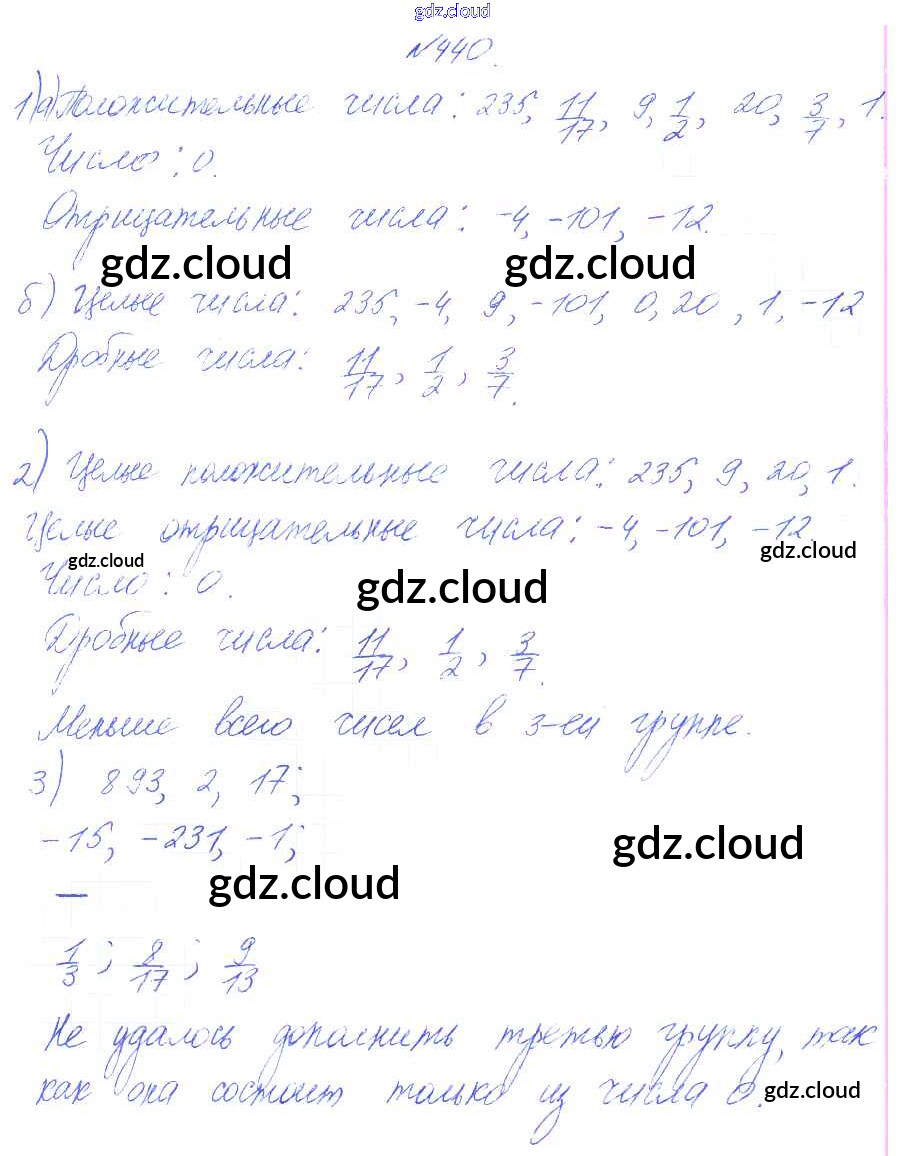 gdz.cloud
№440.
1)а) Положительные числа: 235, 11/17, 9, 1/2, 20, 3/7, 1.
Число: 0.
Отрицательные числа: -4, -101, -12.
gdz.cloud gdz.cloud
б) Целые числа: 235, -4, 9, -101, 0, 20, 1, -12
Дробные числа: 11/17, 1/2, 3/7.
2) Целые положительные числа: 235, 9, 20, 1.
Целые отрицательные числа: -4, -101, -12
gdz.cloud gdz.cloud
Число: 0.
gdz.cloud
Дробные числа: 11/17, 1/2, 3/7.
Меньше всего чисел в 3-ей группе.
3) 893, 2, 17;
-15, -231, -1;
gdz.cloud
gdz.cloud
—
1/3; 8/17; 9/13
Не удалось дополнить третью группу, так
как она состоит только из числа 0.
gdz.cloud